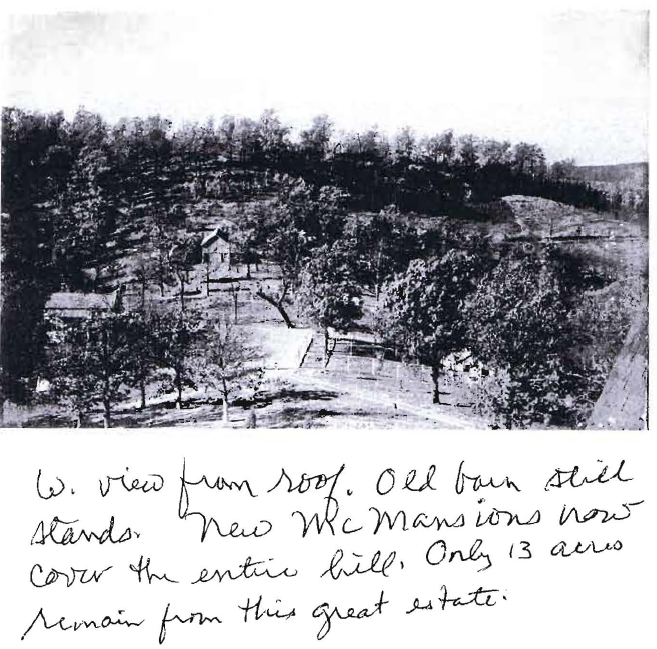 W. view from roof. Old barn still
stands. New McMansions now
cover the entire hill. Only 13 acres
remain from this great estate.